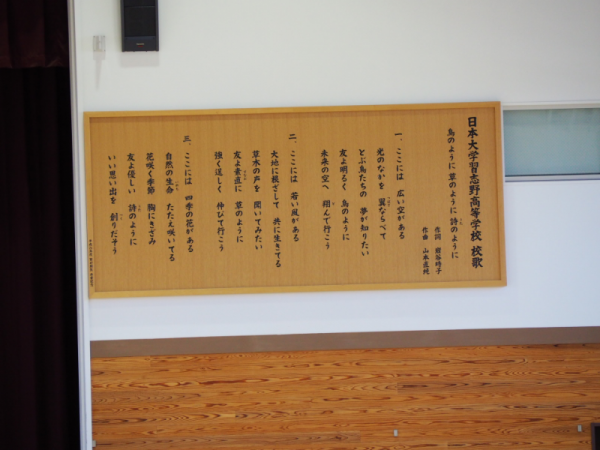 日本大学習志野高等学校 校歌
鳥のように 草のように 詩のように
作詞 新谷時子
作曲 山本直純
一、ここには 広い空がある
光のなかを 翼ならべて
とぶ鳥たちの 夢が知りたい
友よ明るく 鳥のように
未来の空へ 翔んで行こう
二、ここには 若い風がある
大地に根ざして 共に生きてる
草木の声を 聞いてみたい
友よ素直に 草のように
強く逞しく 伸びて行こう
三、ここには 四季の花がある
自然の生命 たたえ咲いてる
花咲く季節 胸にきざみ
友よ優しい 詩のように
いい思い出を 創りだそう